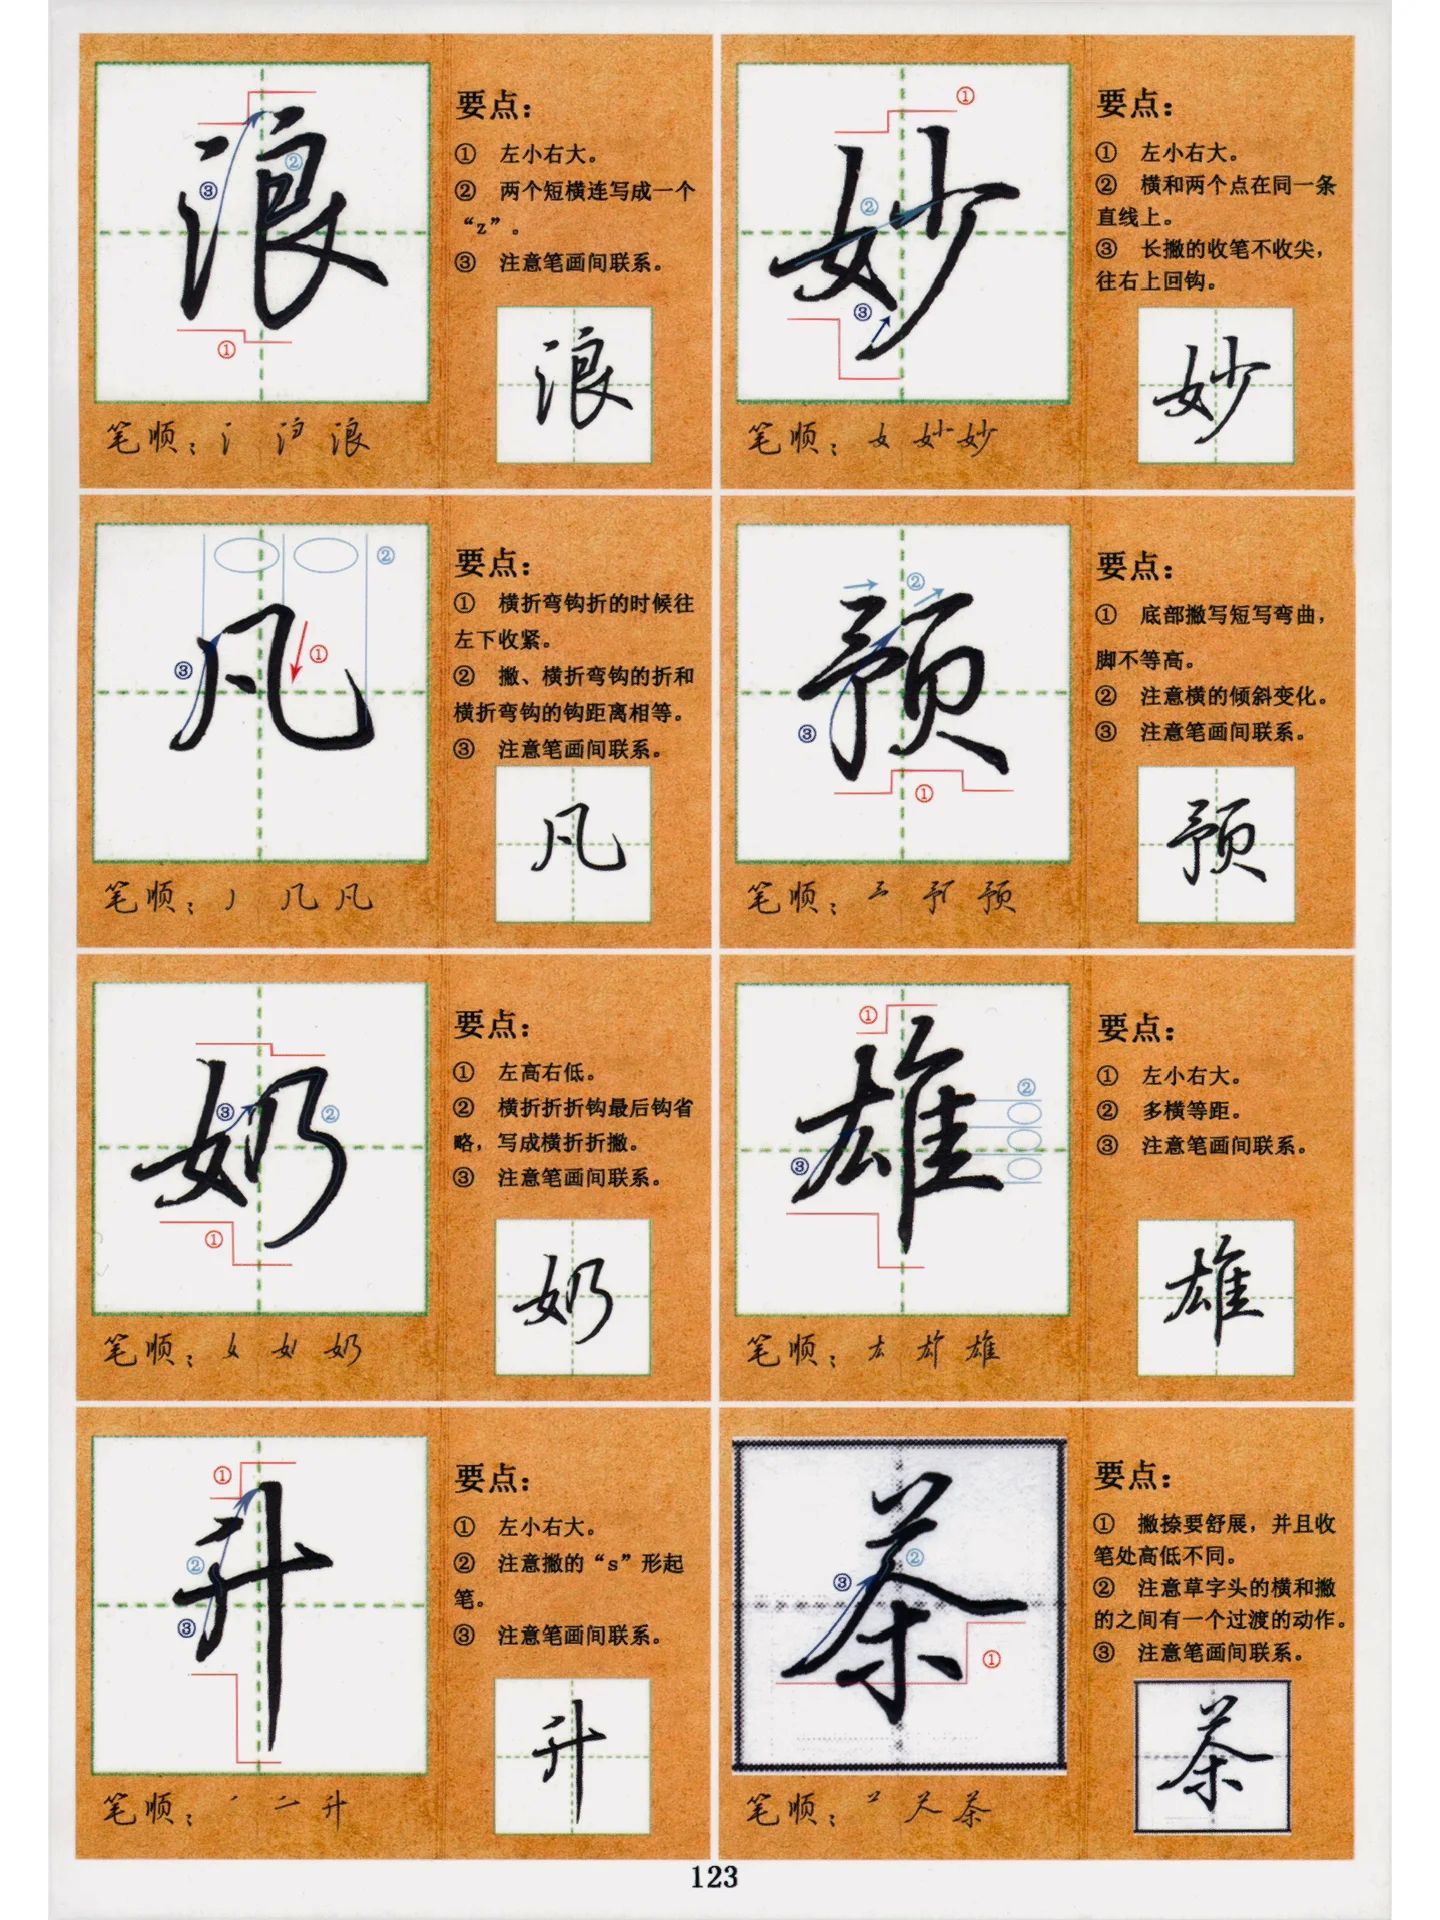 浪
要点：
① 左小右大。
② 两个短横连写成一个
“z”。
③ 注意笔画间联系。
浪
笔顺：氵 浪
妙
要点：
① 左小右大。
② 横和两个点在同一条
直线上。
③ 长撇的收笔不收尖，
往右上回钩。
妙
笔顺：女 妙 妙
凡
要点：
① 横折弯钩折的时候往
左下收紧。
② 撇、横折弯钩的折和
横折弯钩的钩距离相等。
③ 注意笔画间联系。
凡
笔顺：丿 几 凡
预
要点：
① 底部撇写短写弯曲，
脚不等高。
② 注意横的倾斜变化。
③ 注意笔画间联系。
预
笔顺：预
奶
要点：
① 左高右低。
② 横折折折钩最后钩省
略，写成横折折撇。
③ 注意笔画间联系。
奶
笔顺：女 奶
雄
要点：
① 左小右大。
② 多横等距。
③ 注意笔画间联系。
雄
笔顺：雄
升
要点：
① 左小右大。
② 注意撇的“s”形起
笔。
③ 注意笔画间联系。
升
笔顺：升
茶
要点：
① 撇捺要舒展，并且收
笔处高低不同。
② 注意草字头的横和撇
的之间有一个过渡的动作。
③ 注意笔画间联系。
茶
笔顺：茶
123